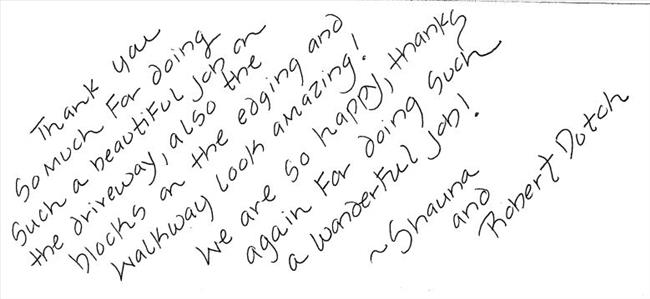 Thank you
so much for doing
such a beautiful job on
the driveway, also the
blocks on the edging and
walkway look amazing!
We are so happy, thanks
again for doing such
a wonderful job!
~Shauna
and
Robert Dotch